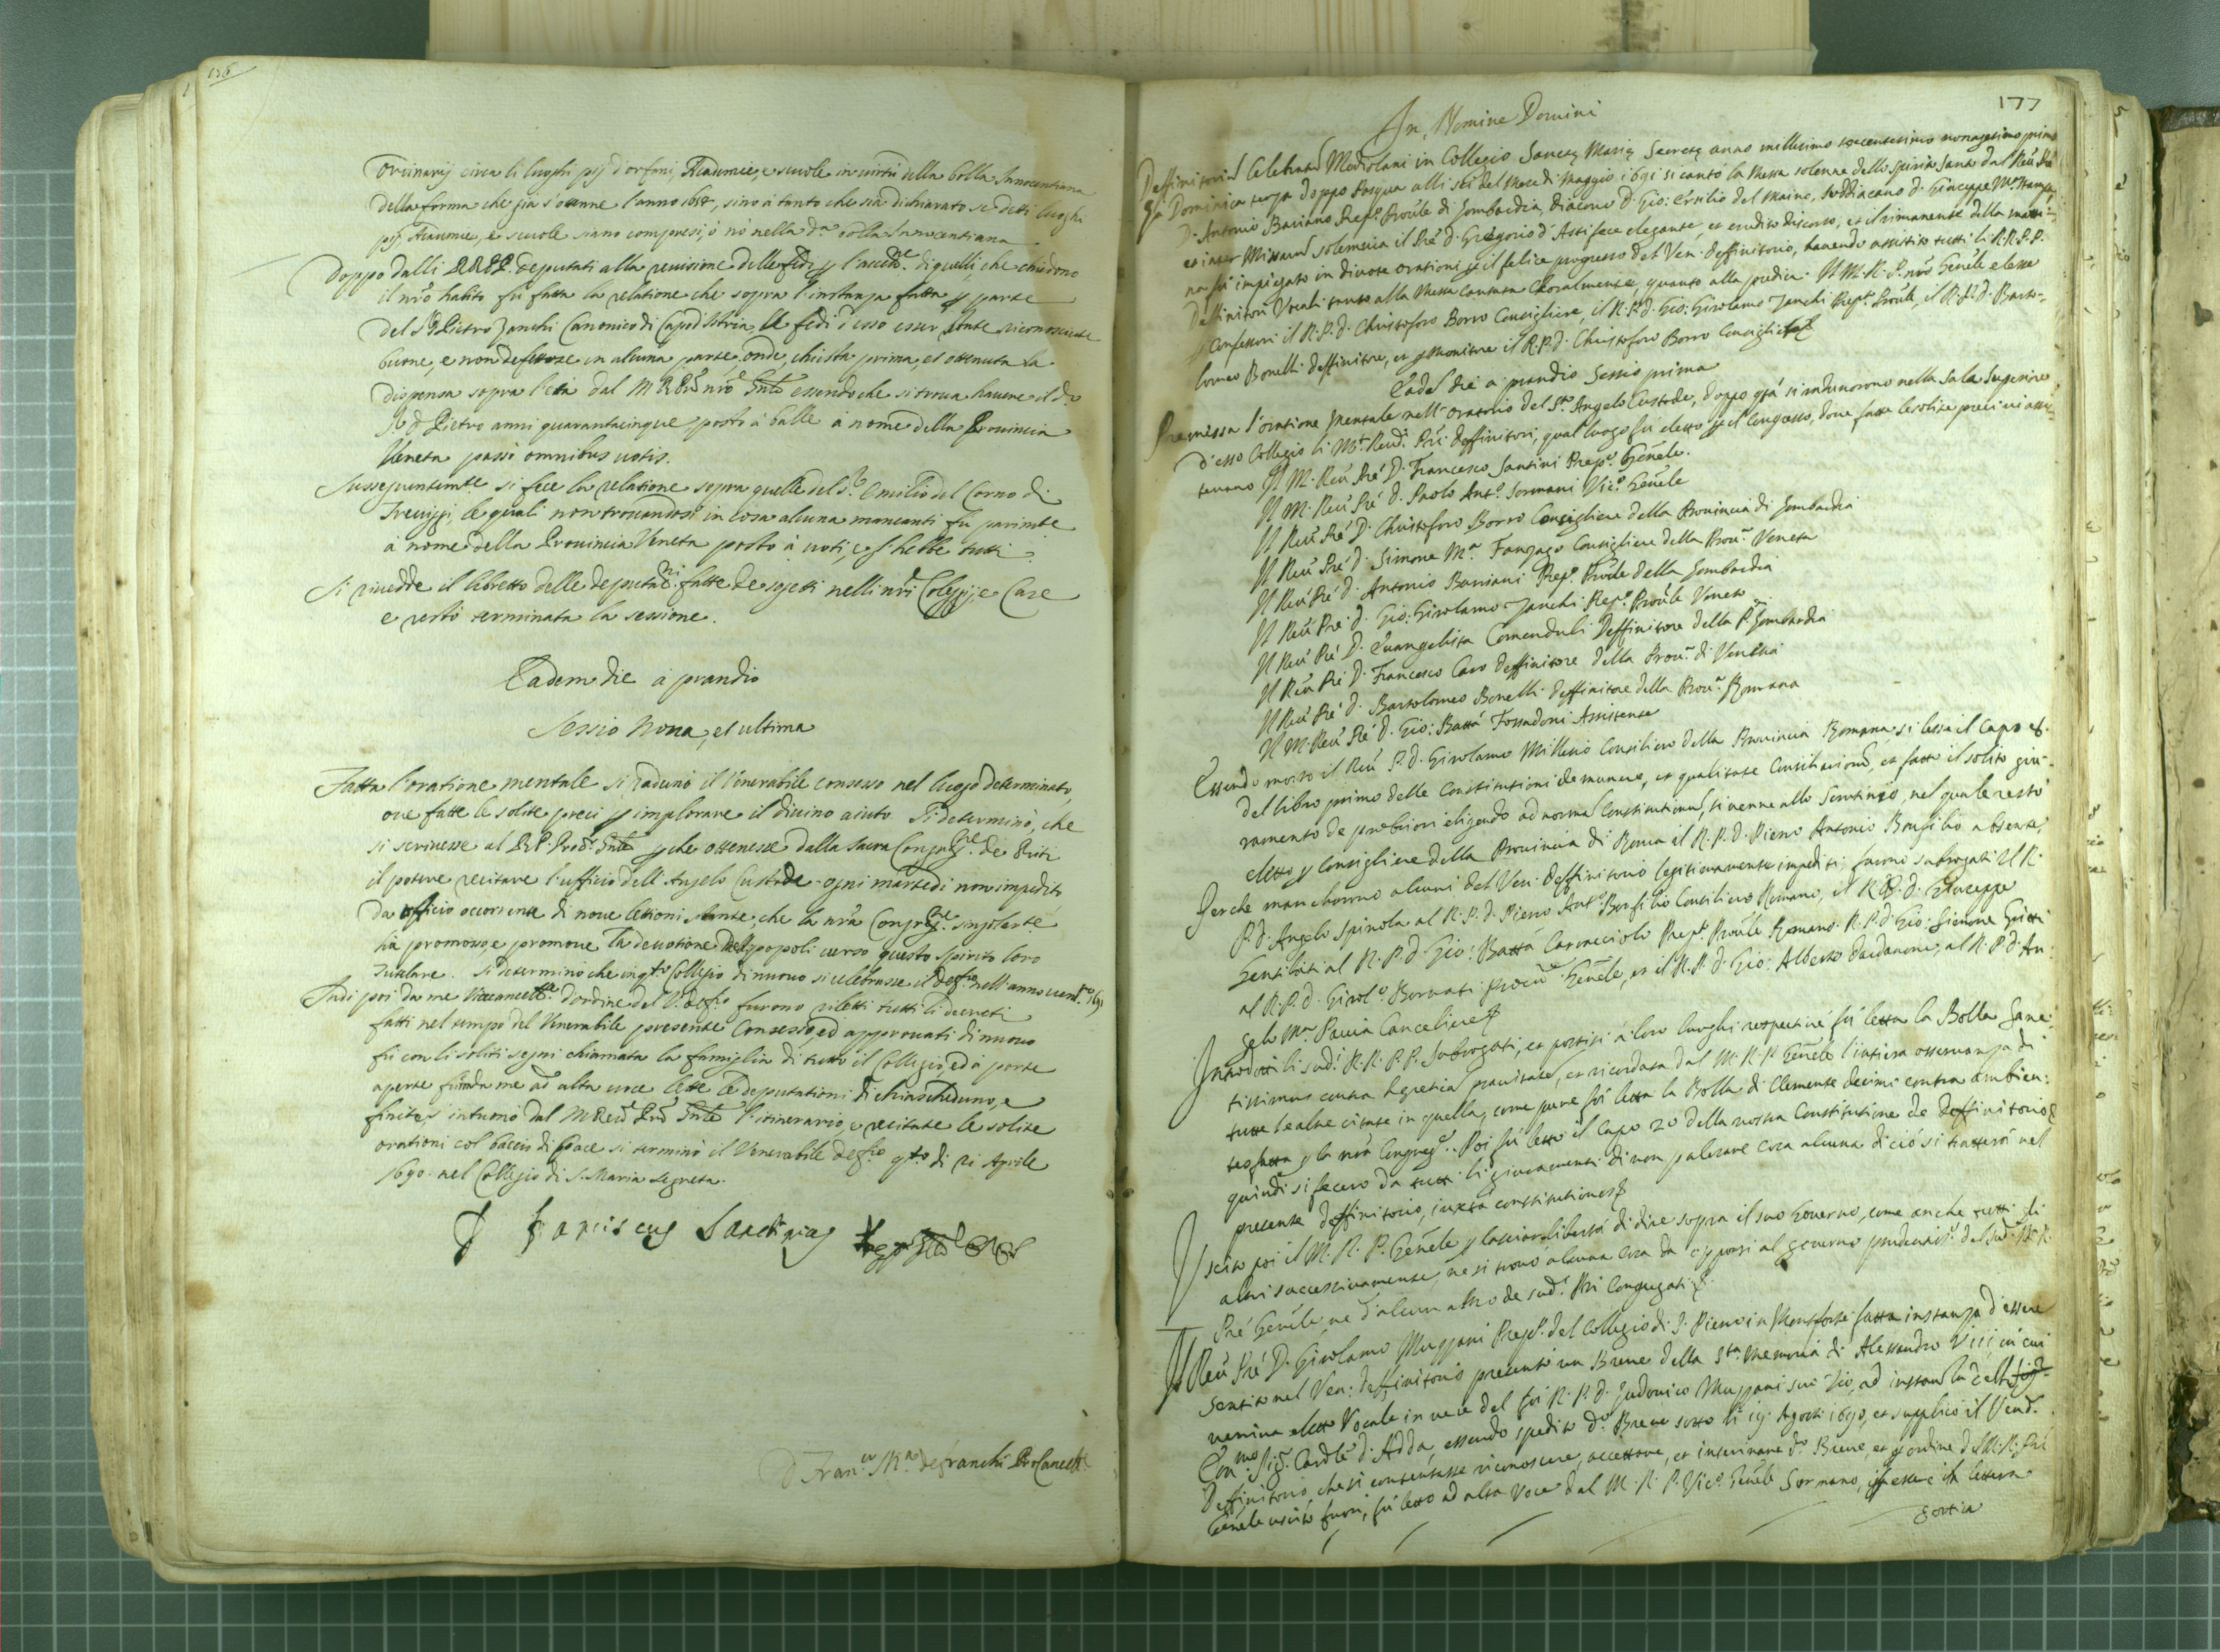 176
Ordinarij circa li luoghi pij d'orfani, Academie, e scuole in virtù della bolla Innocentiana
della forma che già s'ottenne l'anno sino à tanto che sia dichiarato se detti luoghi
pij, Academie, e scuole siano compresi, ò nò nella d.ª bolla Innocentiana
Doppo dalli RR PP. deputati alla revisione delle fedi p l' di quelli, che chiedono
il nrõ habito fù fatta la relatione che sopra l'instanza fatta p parte
del Sr Pietro Zanchi Canonico di Capod'Istria, le fedi d'esso esser state riconosciute
buone, e non defettose in alcuna parte, onde, chiesta prima, et ottenuta la
dispensa sopra l'età dal M R Prẽ nrõ Gnle essendo che si trova havere il d.º
Sr d Pietro anni quarantacinque, posto à balle à nome della Provincia
Veneta passò omnibus votis.
Susseguentemte si fece la relatione sopra quelle del Sr Emilio del Corno di
Treviggi, le quali non trovandosi in cosa alcuna mancanti fu parimte
à nome della Provincia Veneta posto à voti, e gl' hebbe tutti
Si rivedde il libretto delle deputani fatte de sogetti nelli nri Colegij, e Case
e restò terminata la sessione.
Eadem die à prandio
Sessio Nona, et ultima
Fatta l'oratione mentale si radunò il Venerabile consesso nel luogo determinato,
ove fatte le solite preci p implorare il divino aiuto. Si determinò, che
si scrivesse al RP. Procr Gnle p che ottenesse dalla Sacra Congregne de Riti
il potere recitare l'ufficio dell'Angelo Custode ogni martedì non impedito
da officio occorrente di nove lettioni stante, che la nrã Congregne
hà promosso, e promove la devotione popoli verso questo spirito loro
tutelare. Si determinò che in qto Collegio di nuovo si celebrasse il deffrio nell'anno vent.ro 1691
Indi poi da me Vicecancellre d'ordine del V. deffrio furono riletti tutti li decreti
fatti nel tempo del Venerabile presente Consesso, ed approvati di nuovo
fù con li soliti segni chiamata la famiglia di tutto il Collegio, ed à porte
aperte furõ da me ad alta voce lette le deputationi di chiascheduno, e
finite, intuonò dal M Revd Prẽ Gnle l'itinerario, e recitate le solite
orationi col baccio di pace si terminò il Venerabile deffrio qto dì 21 Aprile
1690. nel Collegio di S. Maria Segreta.
Franciscus Santinus
D. Franco Ma defranchi ProCancell.
177
In Nomine Domini
Deffinitoriũ Celebratũ Mediolani in Collegio Sanctę Marię Secretę anno millesimo sexcentesimo nonagesimo primo
Dominica terza doppo Pasqua alli sei del Mese di Maggio 1691 si cantò la Messa solenne dello Spirito Santo dal Reũ Prẽ
D. Antonio Baviano Prepto Prõule di Lombardia, diacono D. Gio: Ersilio del Maino, Suddiacono D. Giuseppe Ma Stampa,
et inter Missarũ solemnia il Prẽ d. Gregorio d'Asti fece elegante, et erudito discorso, et il rimanente della matti-
na fù impiegato in divote orationi p il felice progresso del Ven. deffinitorio, havendo assistito tutti li R.R.P.P.
Deffinitori Vocali tanto alla Messa cantata Choralmente, quanto alla predica. Il M. R. P. nrõ Genẽle elesse
p Confessori il R.P. d. Christoforo Borro Consigliere, il R.P. d. Gio: Girolamo Zanchi Prepto Prõule, il R.P. d. Barto-
lomeo Bonelli deffinitore, et p Monitore il R.P. d. Christoforo Borro Consigliere
Eadẽ die à prandio Sessio prima
Premissa l'oratione Mentale nell'Oratorio del Sto Angelo Custode, doppo qstà si radunorono nella Sala Superiore
d'esso Collegio li Mto Rendi Pri deffinitori, qual luogo fù eletto p il Congresso, dove fatte le solite preci vi assi-
tevano Il M. Reũ Prẽ D. Francesco Santini Prepto Genẽle.
Il M. Reũ Prẽ d. Paolo Anto Sormani Vico Genẽle
Il Reũ Prẽ D. Christoforo Borro Consigliere della Provincia di Lombardia
Il Reũ Prẽ d. Simone Ma Fanzago Consigliere della Prova Veneta
Il Reũ Prẽ d. Antonio Baviani Prepo Prõule della Lombardia
Il Reũ Prẽ d. Gio: Girolamo Zanchi Prepo Prõule Veneto
Il Reũ Prẽ D. Evangelista Comenduli deffinitore della P. Lombardia
Il Reũ Prẽ D. Francesco Caro deffinitore della Prova di Venetia
Il Reũ Prẽ d. Bartolomeo Bonelli deffinitore della Prova Romana
Il M. Reũ Prẽ d. Gio: Batta Fossadoni Assistente
Essendo morto il Reũ P. d. Girolamo Millesio Consiliero della Provincia Romana, si lesse il Capo 28.
del libro primo delle Constitutioni de munere, et qualitate Consiliariorũ, et fatto il solito giu-
ramento de probiori eligendo ad normã Constitutionũ, si venne allo Scrutinio, nel quale restò
eletto p Consigliere della Provincia di Roma il R.P. d. Pietro Antonio Borsilio absente,
Perche manchorno alcuni del Ven. deffinitorio legitimamente impediti, furono subrogati Il R.
P. d. Angelo Spinola al R.P. d. Pietro Anto Borsilio Consiliero Romano, il R.P. d. Giuseppe
Gentilati al R.P. d. Gio: Batta Caracciolo Prepo Prõule Romano. R.P. d. Gio: Simone Gritti
al R.P. d. Girolo Bornati Procure Genẽle, et il R.P. d. Gio: Alberto Dardanone, al R.P. d. An-
gelo Ma Pavia Cancelliere
Introdotti li sudi R.R.P.P. subrogati, et portisi à loro luoghi respectivè fù letta la Bolla Sanc-
tissimus contra hęretica pravitatẽ, et ricordata dal M. R. P. Genẽle l'intiera osservanza di
tutte le altre citate in quella, come pure fù letta la Bolla di Clemente decimo contra ambien-
tes fatta p la nrã Congregne. Poi fù letto il Capo 20 della nostra Constitutione de deffinitorio
quindi si fecero da tutti li giuramenti di non palesare cosa alcuna di ciò si tratterà nel
presente deffinitorio, iuxta constitutiones
Uscito poi il M. R. P. Genẽle p lasciar libertà di dire sopra il suo Governo, come anche tutti gli
altri successivamente, ne si trovò alcuna cosa da opporsi al governo prudentiso del sudo M. R.
Prẽ Genẽle ne d'alcun altro de sudi Pri Congregati.
Il Reũ Prẽ D. Girolamo Muzzani Prepo del Collegio di S. Pietro in Monforte fatta instanza d'essere
sentito nel Ven: deffinitorio presentò un Breve della Sta Memoria di Alessandro VIII in cui
veniva eletto Vocale in vece del fù R.P. d. Ludovico Muzzani suo Zio, ad instanza dell'
Emmo Sigr Cardle d'Adda, essendo spedito do Breve sotto li 19. Agosto 1690, et supplicò il Vend.
Deffinitorio, che si contentasse riconoscere, accettare, et intavinare do Breve, et p ordine del M. R. Prẽ
Genẽle uscito fuori, fù letto ad alta voce dal M. R. P. Vico Genẽle Sormano, la lettera